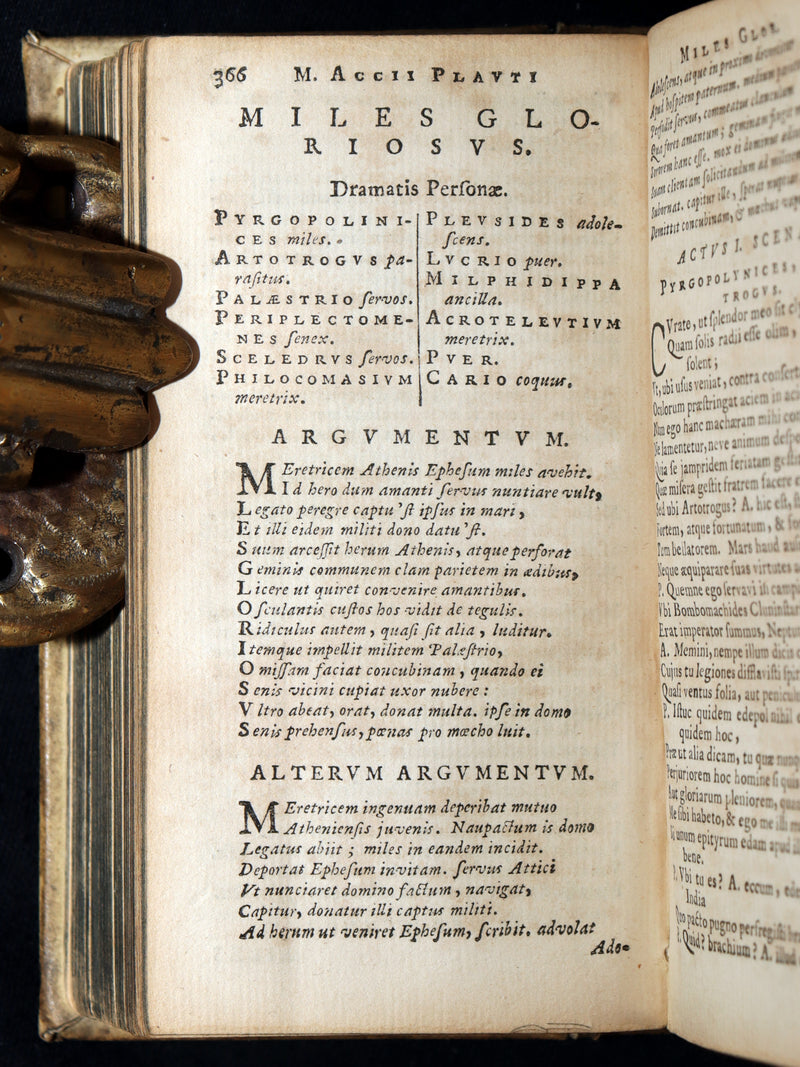 366 M. ACCII PLAVTI
MILES GLO-
RIOSVS.
Dramatis Perſonæ.
PYRGOPOLINI-
CES miles.
ARTOTROGVS pa-
raſitus.
PALÆSTRIO ſervos.
PERIPLECTOME-
NES ſenex.
SCELEDRVS ſervos.
PHILOCOMASIVM
meretrix.
PLEVSIDES adole-
ſcens.
LVCRIO puer.
MILPHIDIPPA
ancilla.
ACROTELEVTIVM
meretrix.
PVER.
CARIO coquus.
ARGVMENTVM.
MEretricem Athenis Epheſum miles avehit.
Id hero dum amanti ſervus nuntiare vult,
Legato peregre captu'ſt ipſus in mari,
Et illi eidem militi dono datu'ſt.
Suum arceſſit herum Athenis, atque perforat
Geminis communem clam parietem in ædibus,
Licere ut quiret convenire amantibus.
Oſculantis cuſtos hos vidit de tegulis.
Ridiculus autem, quaſi ſit alia, luditur.
Itemque impellit militem Palæſtrio,
Omiſſam faciat concubinam, quando ei
Senis vicini cupiat uxor nubere:
Vltro abeat, orat, donat multa. ipſe in domo
Senis prehenſus, pœnas pro mœcho luit.
ALTERVM ARGVMENTVM.
MEretricem ingenuam deperibat mutuo
Athenienſis juvenis. Naupactum is domo
Legatus abiit; miles in eandem incidit.
Deportat Epheſum invitam. ſervus Attici
Vt nunciaret domino factum, navigat,
Capitur, donatur illi captus militi.
Ad herum ut veniret Epheſum, ſcribit. advolat
Ado-
MILES GLOR
Adoleſcens, atque in proximo
Apud hoſpitem paternum.
Perfidit ſervus, commeatus
Qua foret amantum; geminam
Sororem hanc eſſe. mox ei dominus
Suam clientam ſolicitandum ad
Subornat. capitur ille, ſperat
Demittit concubinam, &
ACTVS I. SCEN
PYRGOPOLYNICES,
TROGVS.
CVrate, ut ſplendor meo ſit
Quam ſolis radii eſſe olim,
ſolent;
Vt, ubi uſus veniat, contra
Oculorum præſtringat aciem in
Nam ego hanc machæram mihi
Ne lamentetur, neve animum
Quia ſe jampridem feriatam
Quæ miſera geſtit fratrem facere
Sed ubi Artotrogus? A. hic eſt,
Fortem, atque fortunatum, &
Tum bellatorem. Mars haud
Neque æquiparare ſuas virtutes
P. Quemne ego ſervavi in
Vbi Bombomachides
Erat imperator ſummus,
A. Memini, nempe illum
Cujus tu legiones difflaviſti
Quaſi ventus folia, aut
P. Iſtuc quidem edepol
quidem hoc,
Præut alia dicam, tu quæ
Perjuriorem hoc homine
Aut gloriarum pleniorem,
Me ſibi habeto, & ego me
epityrum
bene.
P. Vbi tu es? A. eccum,
India
Quo pacto pugno
P. Quid? brachium? A.